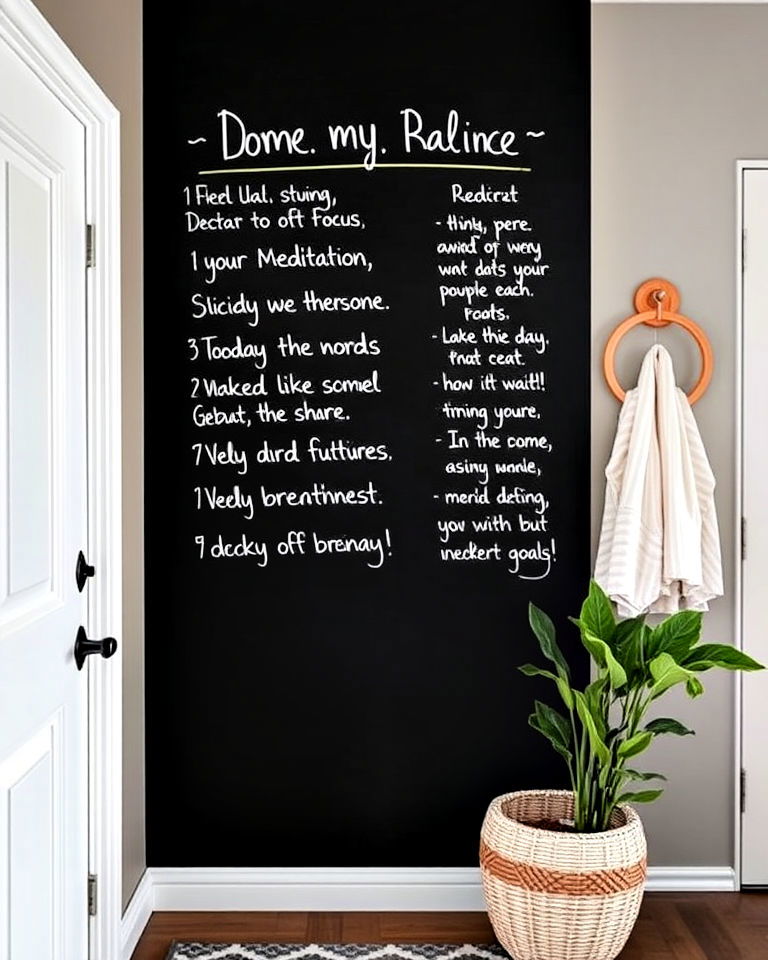 ~ Dome. my. Ralince ~
1 Fleel Ual. stuing,
Dectar to oft Focus,
1 your Meditation,
Slicidy we thersone.
3 Tooday the nords
2 Naked like scomel
Gebut, the share.
7 Vely dird futtures.
1 Veely brentinnest.
9 dccky off brenay!
Redirat
- think, pere.
awind of wery
wnt dats your
pouple each.
roots.
- Lake thie day.
that ceat.
- how itt waitl!
tining youre,
- In the come,
asiny wonle,
- merid defing,
you with but
ineckert goals!